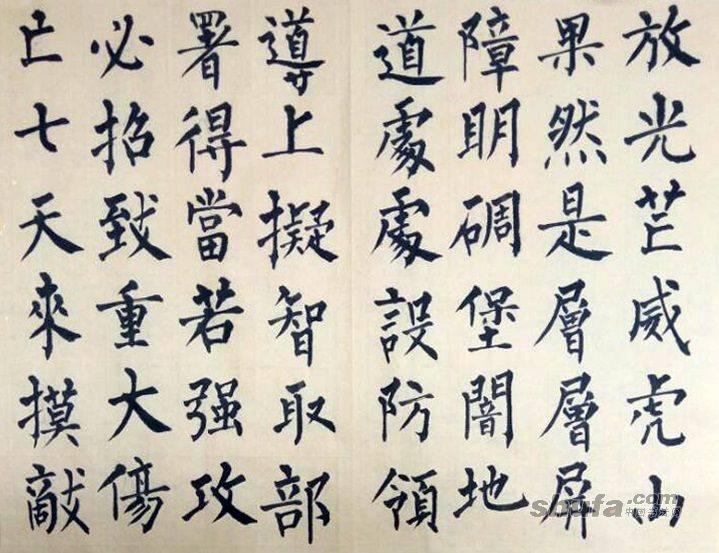 放光芒威虎山
果然是層層屏
障明碉堡闇地
道處處設防領
導上擬智取部
署得當若强攻
必招致重大傷
亡七天來摸敵
shufa.com
中国书法网